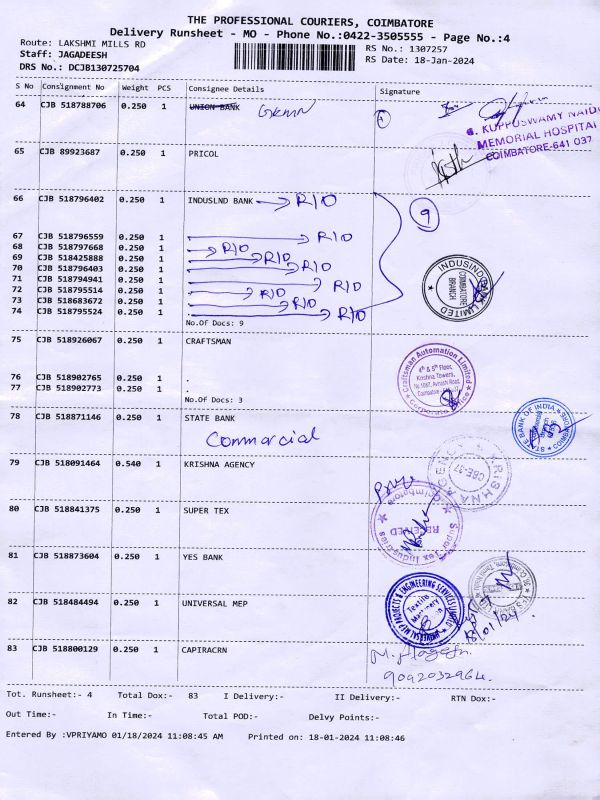 THE PROFESSIONAL COURIERS, COIMBATORE
Delivery Runsheet - MO - Phone No.:0422-3505555 - Page No.:4
Route: LAKSHMI MILLS RD
RS No.: 1307257
Staff: JAGADEESH
RS Date: 18-Jan-2024
DRS No.: DCJB130725704
S No Consignment No Weight PCS Consignee Details Signature
64 CJB 518788706 0.250 1 UNION BANK
G. KUPPUSWAMY NAIDU
MEMORIAL HOSPITAL
COIMBATORE-641 037
65 CJB 89923687 0.250 1 PRICOL
66 CJB 518796402 0.250 1 INDUSLND BANK R/O
9
67 CJB 518796559 0.250 1 . R/O
68 CJB 518797668 0.250 1 . R/O
69 CJB 518425888 0.250 1 . R/O
70 CJB 518796403 0.250 1 . R/O
71 CJB 518794941 0.250 1 . R/O
72 CJB 518795514 0.250 1 . R/O
73 CJB 518683672 0.250 1 . R/O
74 CJB 518795524 0.250 1 . R/O
INDUSIND BANK LIMITED
COIMBATORE
BRANCH
No.Of Docs: 9
75 CJB 518926067 0.250 1 CRAFTSMAN
Craftsman Automation Limited
4th & 5th Floor,
Krishna Towers,
Corporate Office
76 CJB 518902765 0.250 1 .
77 CJB 518902773 0.250 1 .
No.Of Docs: 3
78 CJB 518871146 0.250 1 STATE BANK
Commercial
STATE BANK OF INDIA
79 CJB 518091464 0.540 1 KRISHNA AGENCY
KRISHNA AGENCY
CBE-37
80 CJB 518841375 0.250 1 SUPER TEX
Super Tex Industries
Coimbatore
RECEIVED
81 CJB 518873604 0.250 1 YES BANK
82 CJB 518484494 0.250 1 UNIVERSAL MEP
UNIVERSAL MEP PROJECTS & ENGINEERING SERVICES LIMITED
Textile
Machinery
18/01/24.
83 CJB 518800129 0.250 1 CAPIRACRN
9092032964.
Tot. Runsheet:- 4 Total Dox:- 83 I Delivery:- II Delivery:- RTN Dox:-
Out Time:- In Time:- Total POD:- Delvy Points:-
Entered By :VPRIYAMO 01/18/2024 11:08:45 AM Printed on: 18-01-2024 11:08:46